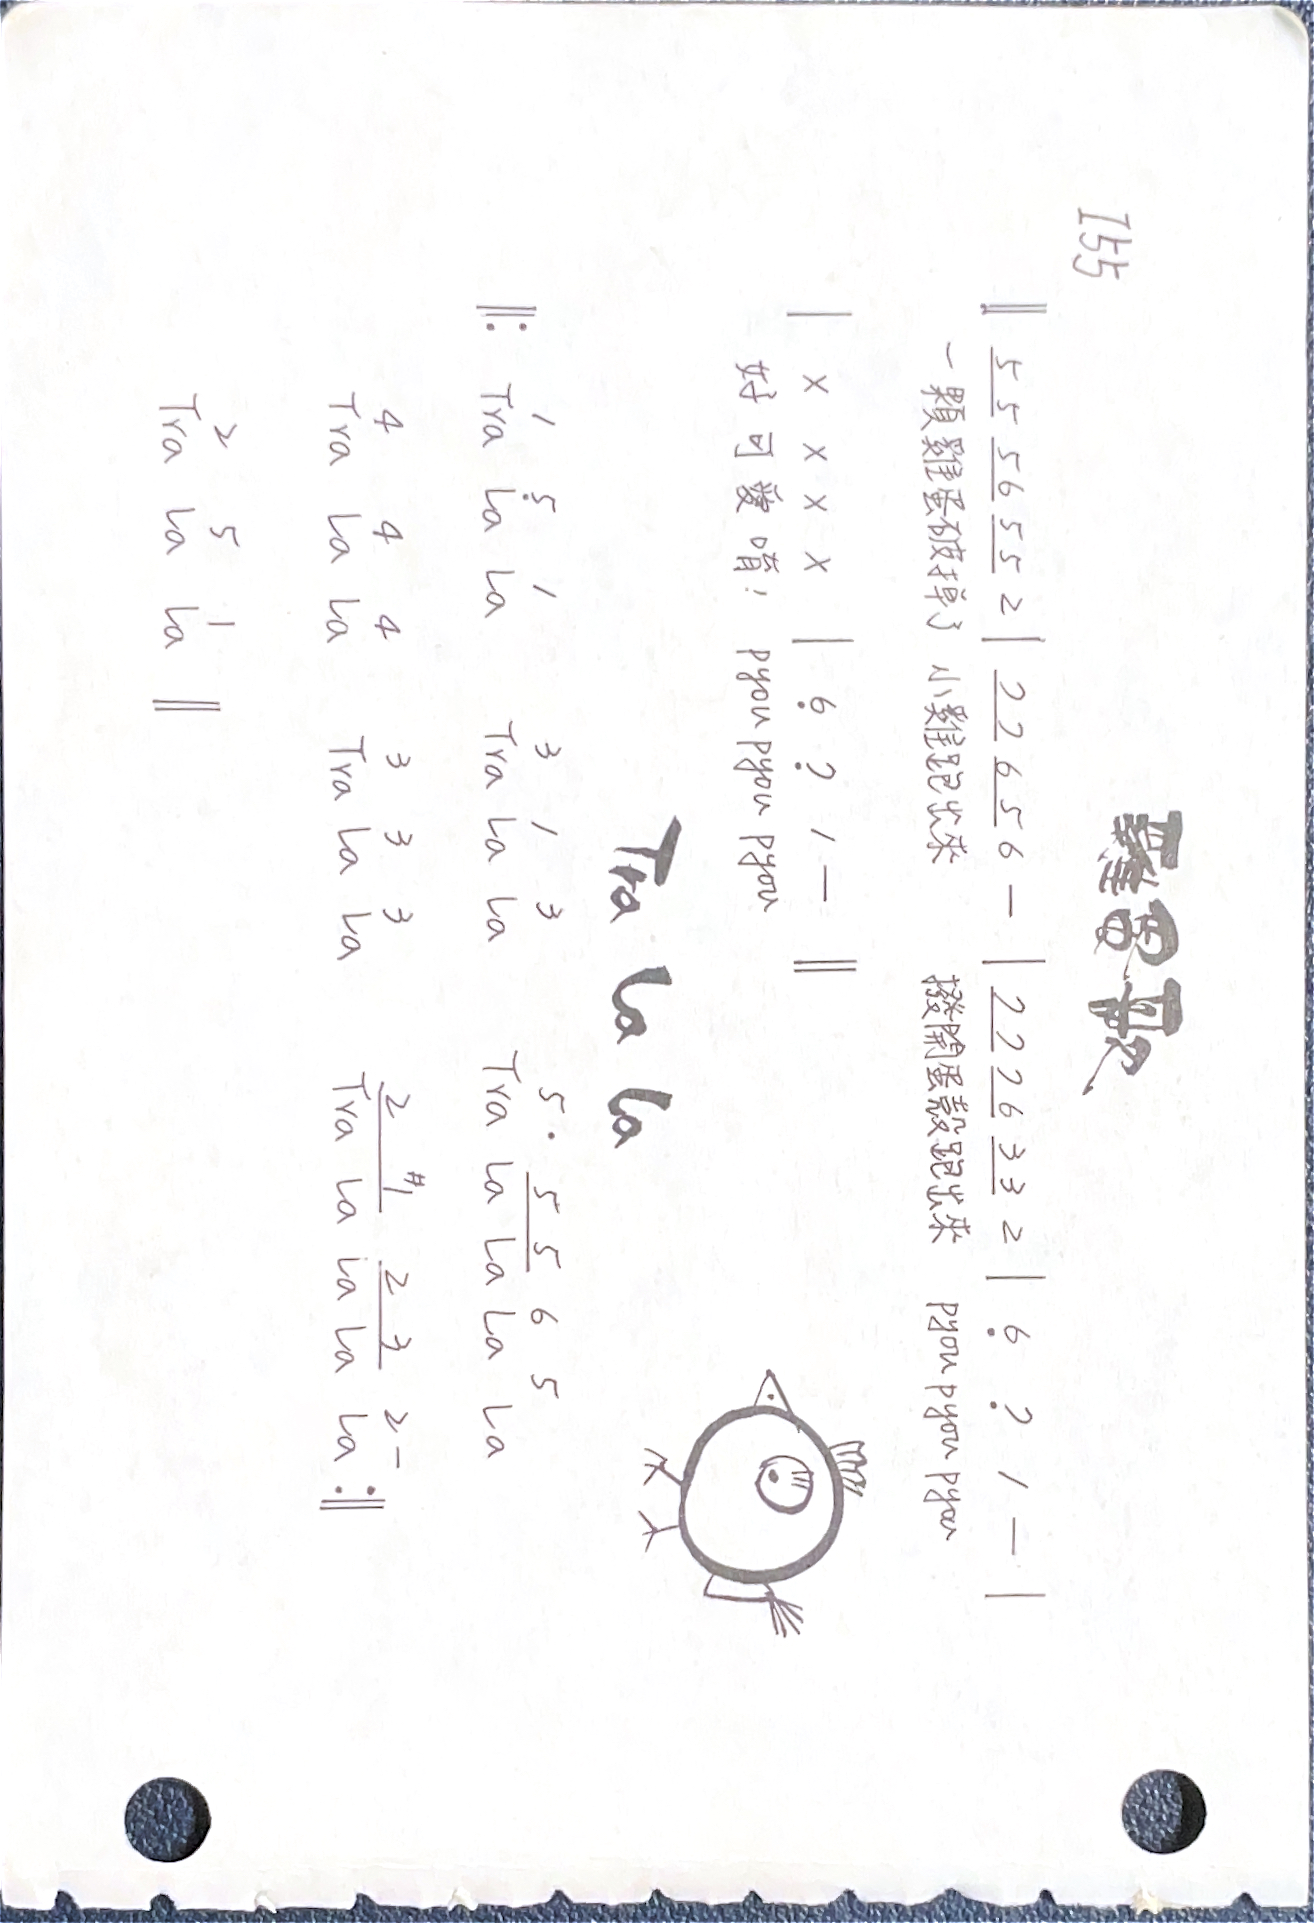 雞蛋歌
I55
‖ 5 5 5 6 5 5 2 | 7 7 6 5 6 — | 7 7 7 6 3 3 2 | 6̣ 7̣ 1 — |
一顆雞蛋破掉了 小雞跑出來 撥開蛋殼跑出來 pyou pyou pyou
| x x x x | 6̣ 7̣ 1 — ‖
好可愛唷! pyou pyou pyou
Tra La La
‖: 1 5̣ 1 3 1 3 5 · 5 5 6 5
Tra La La Tra La La Tra La La La La
4 4 4 3 3 3 2 #1 2 3 2 — :‖
Tra La La Tra La La Tra La La La La
2 5 1 ‖
Tra La La